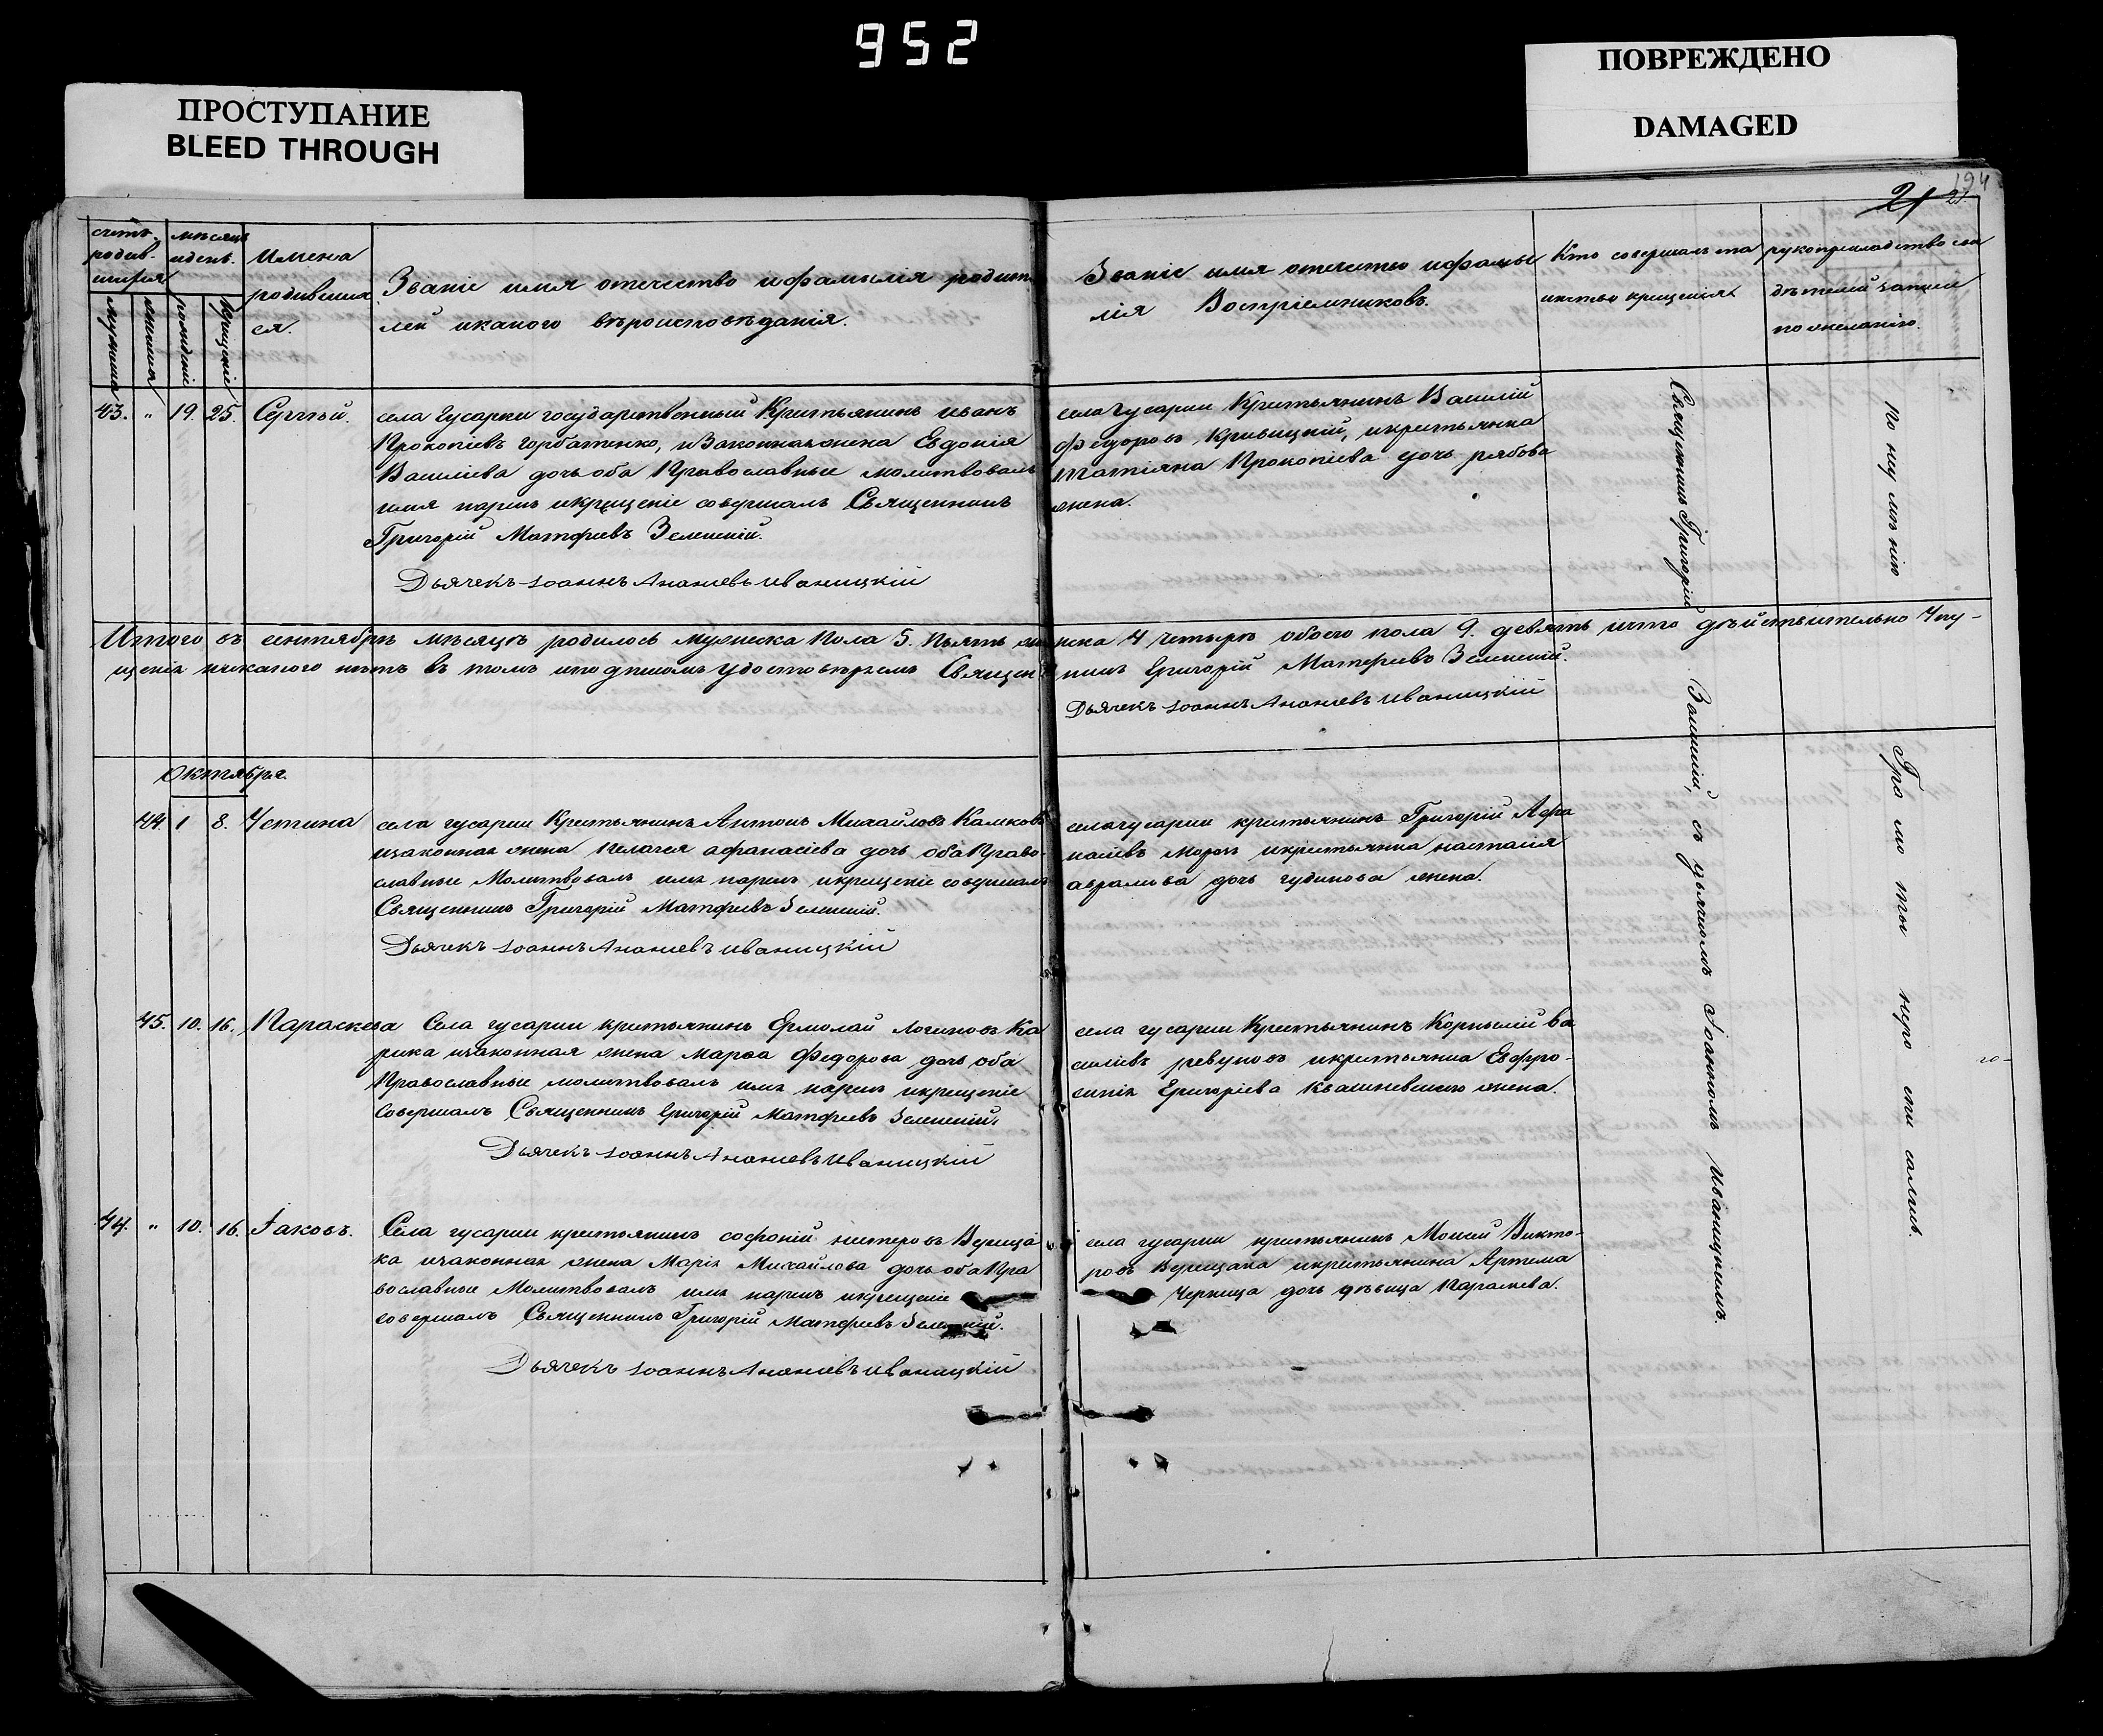 952
ПРОСТУПАНИЕ
BLEED THROUGH
ПОВРЕЖДЕНО
DAMAGED
194
21
21
счетъ
родив-
шихся
мужеска
женска
мѣсяцъ
и день
рожденіе
крещеніе
Имена
родивших
ся.
Званіе имя отечество и фамылія родите
лей и какого вѣроисповѣданія.
Званіе имя отечество и фамы
лія Воспріемниковъ.
Кто совершалъ та
инство крещенія
рукоприкладство сви
дѣтелей записи
по желанію.
43. " 19. 25. Сергѣй.
села Гусарки государственный Крестьянинъ иванъ
Прокопіевъ горбатенко, и Законная жена Евдокія
Василіева дочь оба Православные молитвовалъ
имя нарекъ и крещеніе совершалъ Священникъ
Григорій Матфіевъ Зеленскій.
Дьячекъ Іоаннъ Ананіевъ иваницкій
села Гусарки Крестьянинъ Василій
Федоровъ Кривицкій, и крестьянка
татіяна Прокопіева дочь рябова
жена.
Итого въ сентябрѣ мѣсяцѣ родилось мужеска Пола 5. Пьять женска 4 четыре обоего пола 9. девять и что дѣйствительно Упу-
щенія никакого нѣтъ въ томъ и подписомъ удостовѣряемъ Священникъ Григорій Матфіевъ Зеленскій.
Дьячекъ Іоаннъ Ананіевъ иваницкій
Октября
44. 1 8. Устина
села гусарки Крестьянинъ Антонъ Михайловъ Камковъ
и законная жена Пелагея афанасіева дочь оба Право-
славные Молитвовалъ имя нарекъ и крещеніе совершалъ
Священникъ Григорій Матфіевъ Зеленскій.
Дьячекъ Іоаннъ Ананіевъ иваницкій
села гусарки крестьянинъ Григорій Афа
насіевъ Морозъ и крестьянка настасія
аврамова дочь гудинова жена.
45. 10. 16. Параскева
Села гусарки крестьянинъ Ермолай логиновъ Ка
рика и законная жена марѳа Федорова дочь оба
Православные молитвовалъ имя нарекъ и крещеніе
Совершалъ Священникъ Григорій Матфіевъ Зеленскій.
Дьячекъ Іоаннъ Ананіевъ иваницкій
села гусарки Крестьянинъ Корнылій ва
силіевъ ревуновъ и крестьянка Ефро-
синія Григоріева Квашневскаго жена.
44. " 10. 16. Іаковъ.
Села гусарки крестьянинъ софоній нестеровъ Верища
ка и законная жена Марія Михайлова дочь оба Пра
вославные Молитвовалъ имя нарекъ и крещеніе
совершалъ Священникъ Григорій Матфіевъ Зеленскій.
Дьячекъ Іоаннъ Ананіевъ иваницкій
села гусарки крестьянинъ Моисей Викто-
ровъ Верищака и крестьянина Артема
Черныща дочь дѣвица Параскева.
Священникъ Григорій Зеленскій, съ дьячкомъ Іоанномъ Иваницкимъ.
По не умѣнію Грамоты